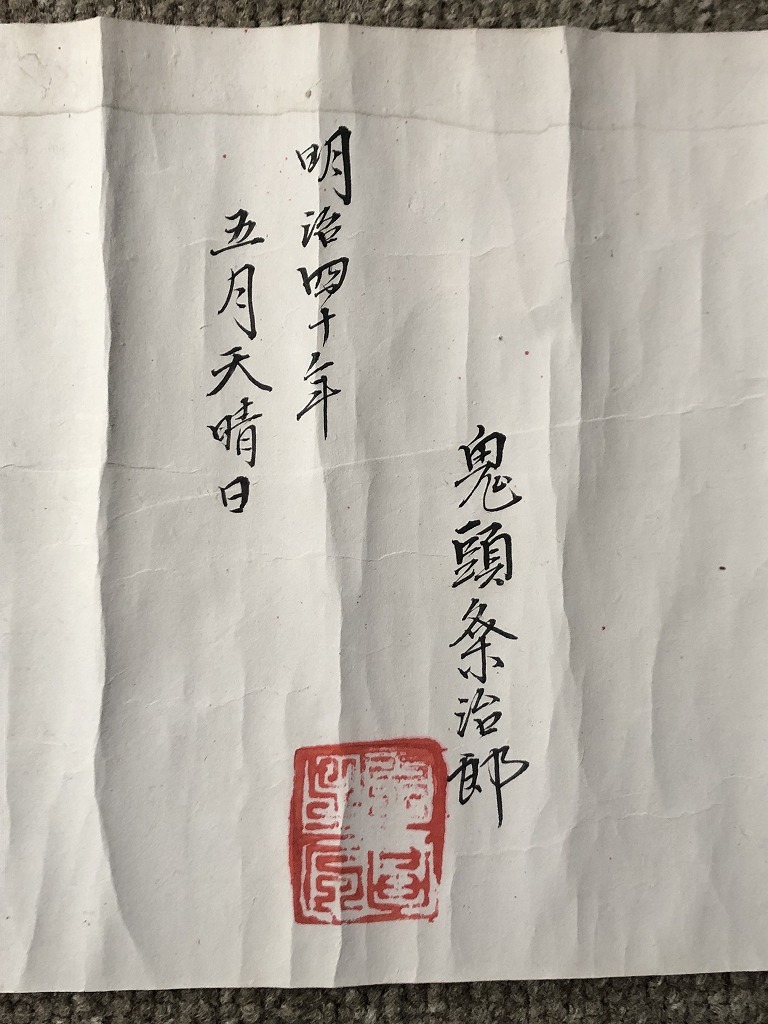 鬼頭条治郎
明治四十年
五月天晴日